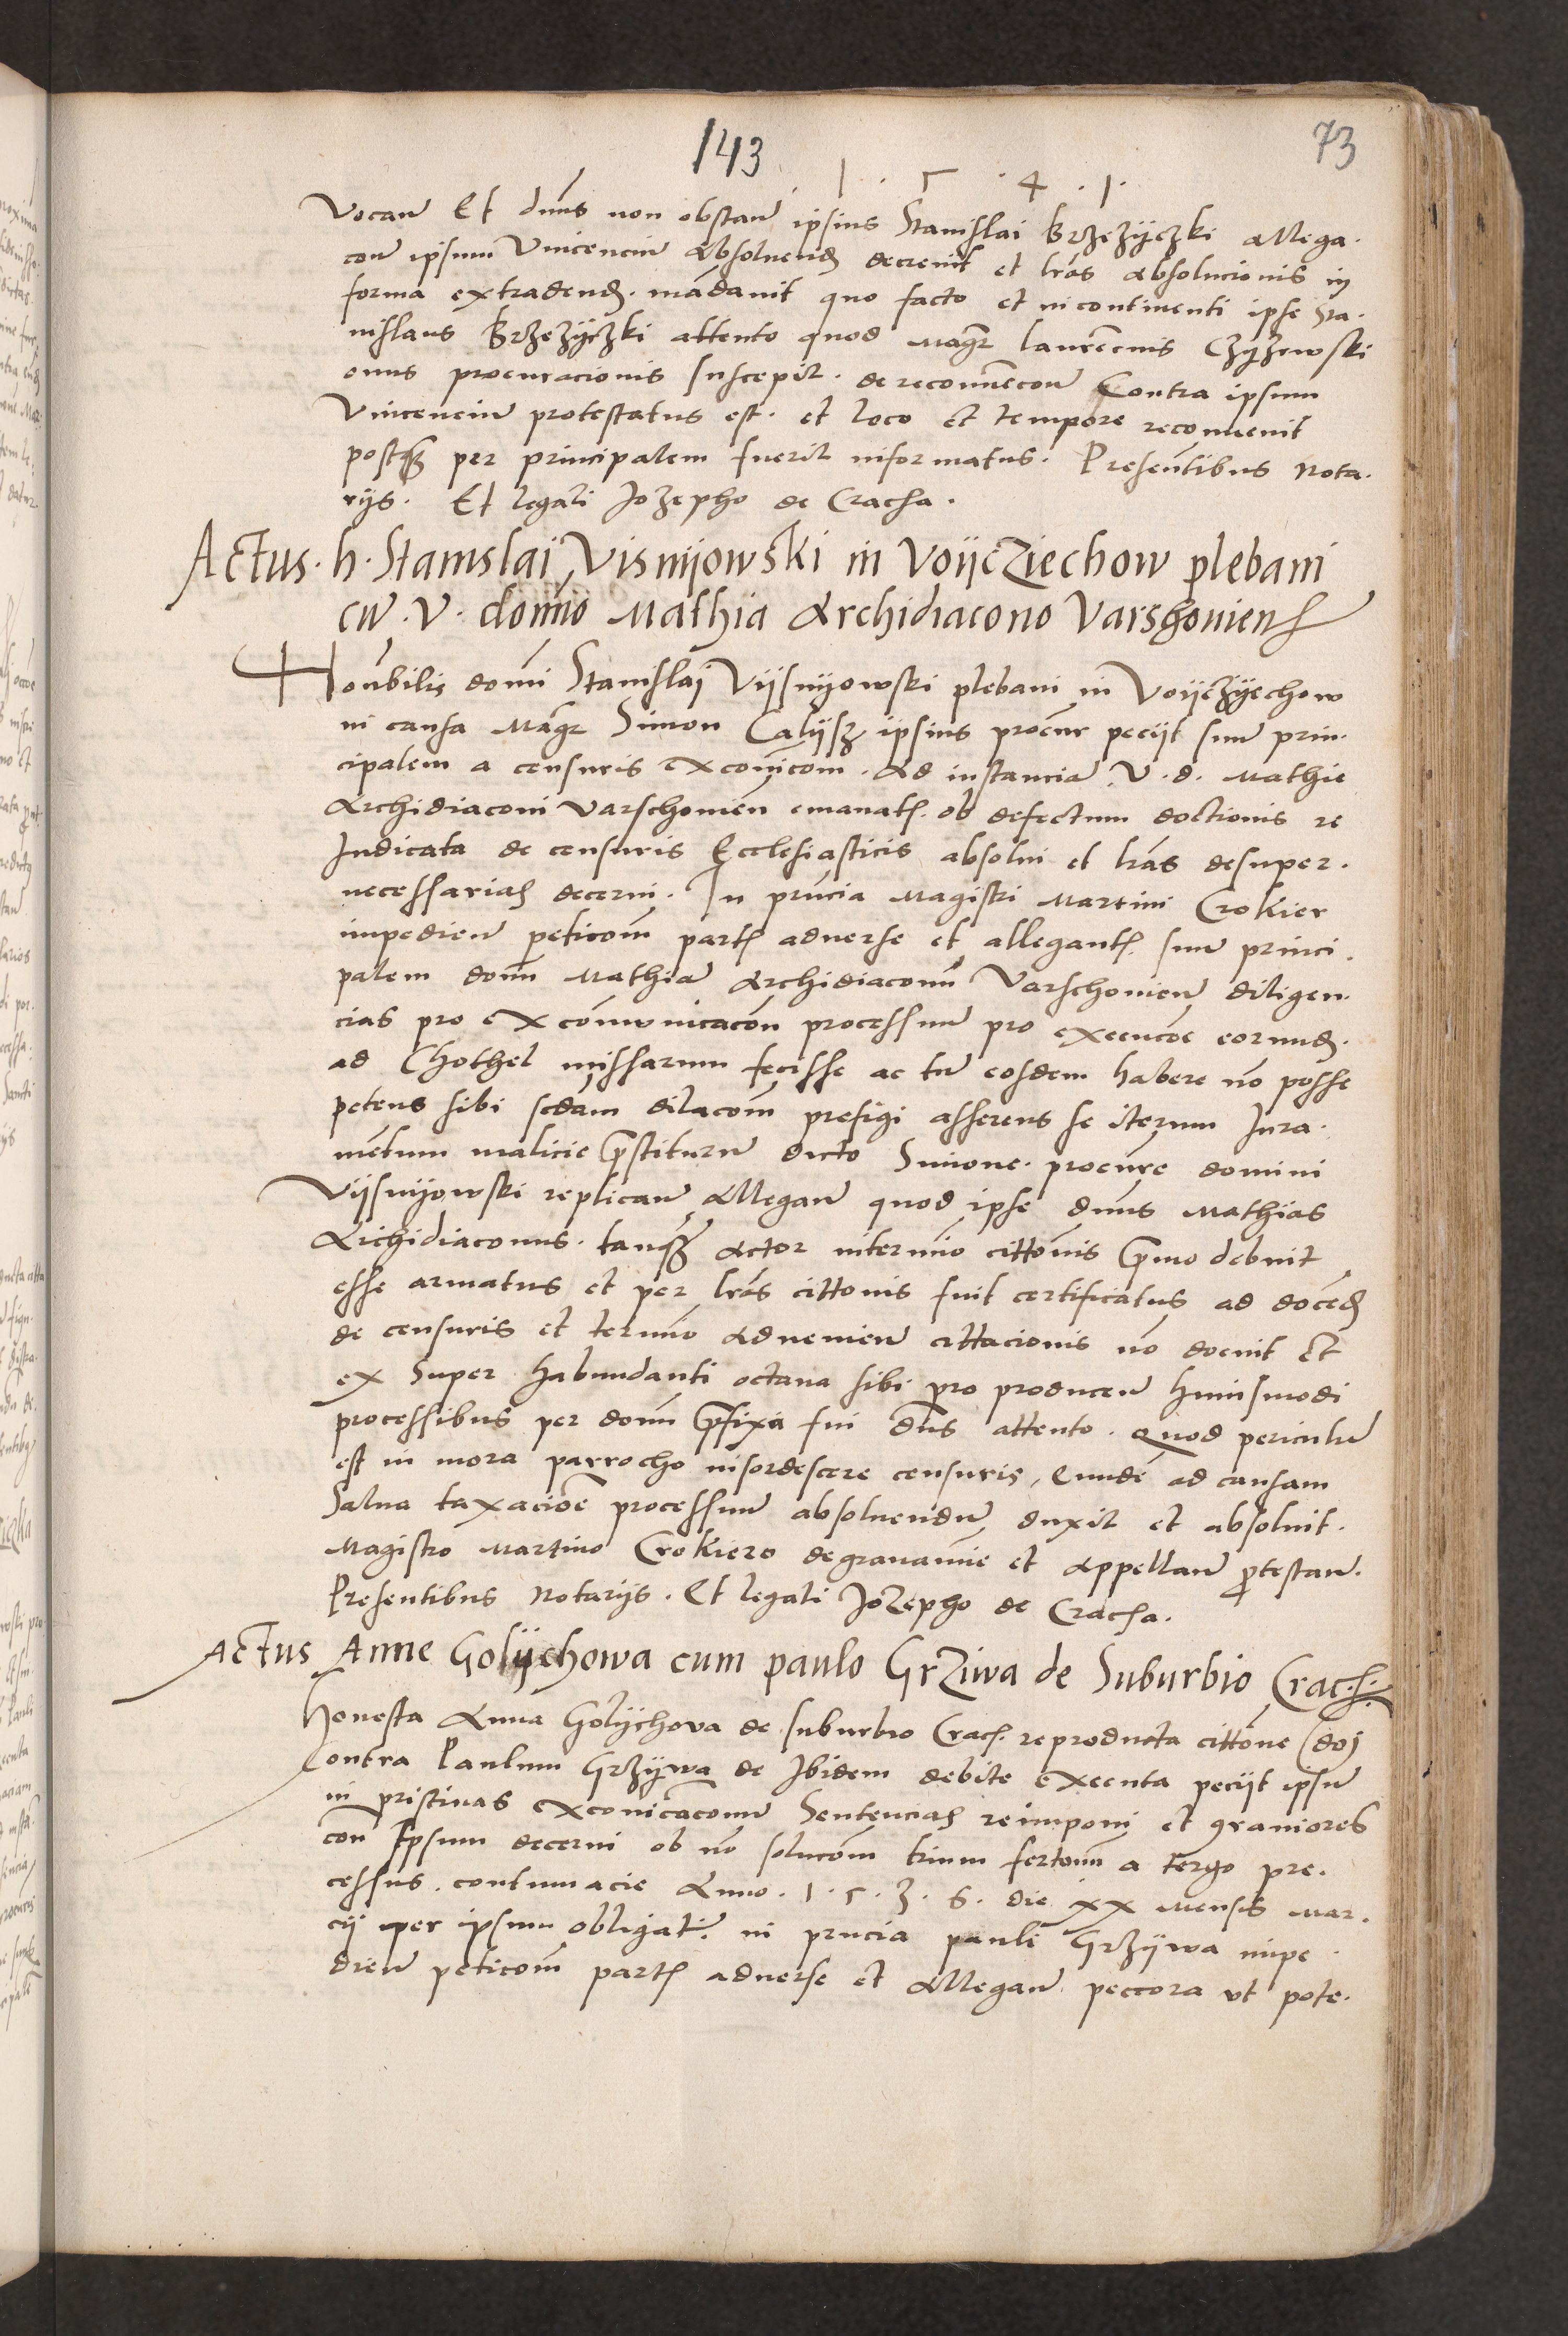 143
73
1 . 5 . 4 . 1 .
vocan Et dnus non obstan ipsius Stanislai Brzezyczki allega.
con ipsum Vincenciu absoluend decreuit et lras absolucionis in
forma extradend. madauit quo facto et incontinenti ipse Sta.
nislaus Brzezyczki attento quod Magr laurecius Czyzewski
onus procuracionis suscepit. de recouecon Contra ipsum
Vincenciu protestatus est. et loco et tempore reconuenit
postq per principalem fuerit informatus. Presentibus Nota.
rijs. Et legali Jozepho de Cracha.
Actus. h. Stanislai Visnijowski in Voijcziechow plebani
cu. V. domio Mathia Archidiacono Varschouien
Honbilis domi Stanislaj Vijsnijowski plebani in Voijczyechow
in causa Magr Simon Calijsz ipsius procur peciit suu prin.
cipalem a censuris exconicom. Ad instancia V. d. Mathie
Archidiaconi Varschouien emanat. ob defectum doctionis re
Iudicata de censuris Ecclesiasticis absolui et lras desuper.
necessarias decerni. In pruncia Magistri Martini Crokier
impedien peticom part aduerse et allegant suu princi.
palem donu Mathia Archidiaconu Varschouien diligen.
cias pro excomunicacon processuu pro execucoe eorund.
ad Chothel missarum fecisse ac tn eosdem habere no posse
petens sibi scdam dilacom prefigi asserens se iterum Iura.
metum malicie prestituru dicto Simone. procure domini
Vijsnijowski replican allegan quod ipse dnus Mathias
Archidiaconus. tanq Actor in termino cittonis primo debuit
esse armatus et per lras cittonis fuit certificatus ad docend
de censuris et termio aduenien cittacionis no docuit Et
ex super habundanti octaua sibi pro producen huiusmodi
processibus per donu prefixa fui Dns attento. Quod periculu
est in mora parrocho insordescere censuris, Eunde ad causam
Salua taxacioe processuu absoluendu duxit et absoluit.
Magistro Martino Crokiero degrauamie et appellan protestan.
Presentibus Notarijs. Et legali Jozepho de Cracha.
Actus Anne Golychowa cum paulo Grziwa de Suburbio Crac.
Honesta Anna Golychova de suburbio Crac. reproducta cittone (doj
Contra Paulum Grzijwa de Ibidem debite executa peciit ipsu
in pristinas exconicacomu Sentencias reimponi et grauiores
con Ipsum decerni ob no solucom trium fertonu a tergo pre.
cessus. contumacie Anno. 1. 5. 3. 6. die xx mensis Mar.
cij per ipsum obligat. in prncia pauli Grzijwa impe.
dien peticom part aduerse et allegan peccora vt pote.